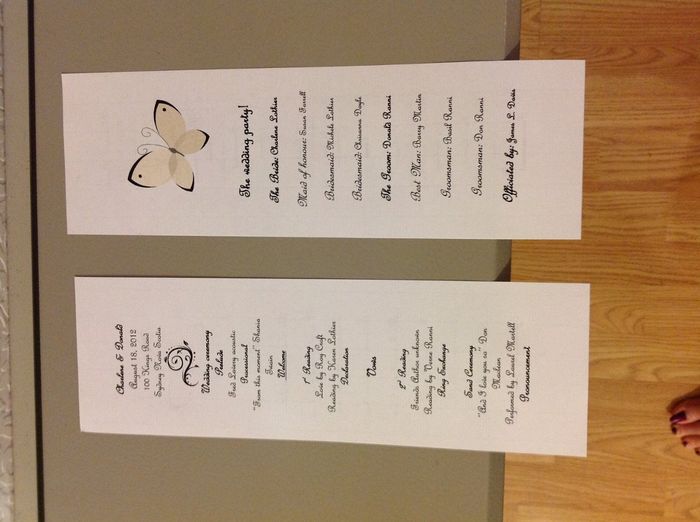 The wedding party!
The Bride: Charlene Lothier
Maid of honour: Susan Farrell
Bridesmaid: Michele Lothier
Bridesmaid: Chrisanna Doyle
The Groom: Donald Ranni
Best Man: Barry Martin
Groomsman: Basil Ranni
Groomsman: Don Ranni
Officiated by: James L. Davis
Charlene & Donald
August 18, 2012
100 Kings Road
Sydney Nova Scotia
Wedding ceremony
Prelude
Fred Lavery acoustic
Processional
"From this moment" Shania
Twain
Welcome
1st Reading
Love by Roy Croft
Reading by Karen Lothier
Declaration
Vows
2nd Reading
Friends Author unknown
Reading by Vivane Ranni
Ring Exchange
Sand Ceremony
"And I love you so" Don
Maclean
Performed by Laurel Martell
Pronouncement